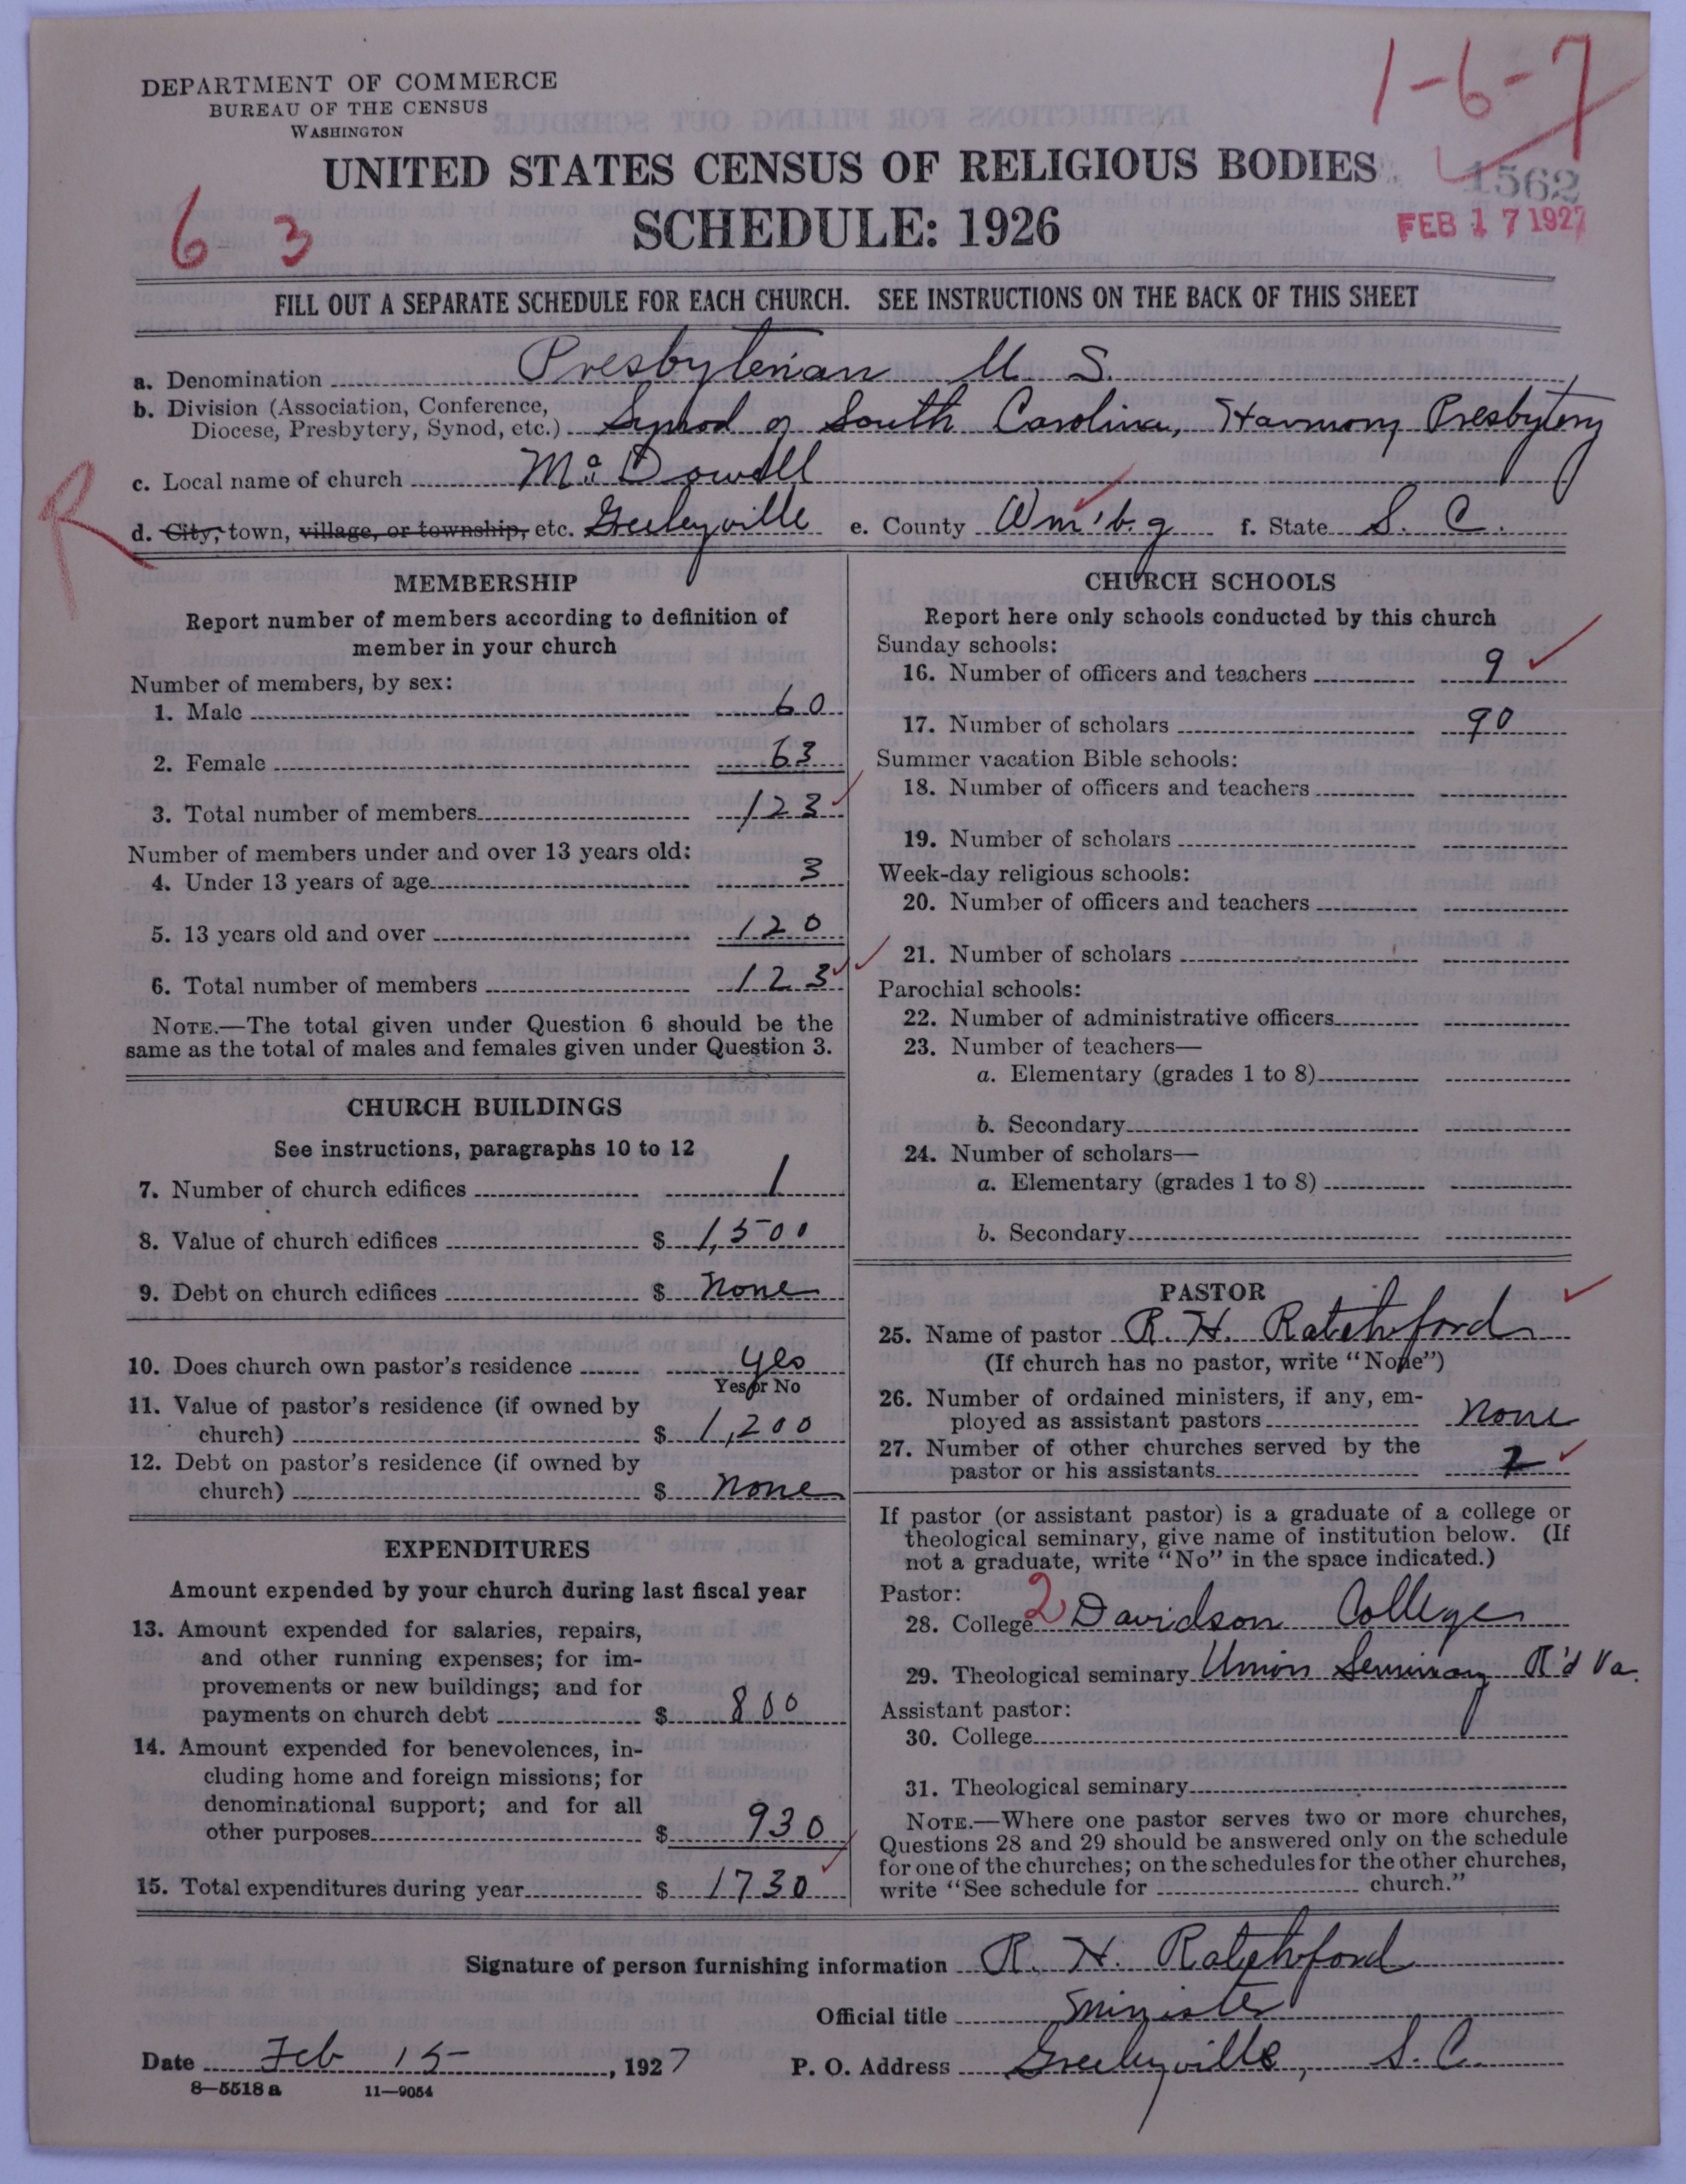 DEPARTMENT OF COMMERCE
BUREAU OF THE CENSUS
WASHINGTON
1-6-7
UNITED STATES CENSUS OF RELIGIOUS BODIES
1562
6 3
SCHEDULE: 1926
FEB 17 1927
FILL OUT A SEPARATE SCHEDULE FOR EACH CHURCH. SEE INSTRUCTIONS ON THE BACK OF THIS SHEET
a. Denomination Presbyterian U. S.
b. Division (Association, Conference,
Diocese, Presbytery, Synod, etc.) Synod of South Carolina, Harmony Presbytery
c. Local name of church McDowell
d. City, town, village, or township, etc. Greeleyville e. County Wm'b.g f. State S. C.
MEMBERSHIP
Report number of members according to definition of
member in your church
Number of members, by sex:
1. Male 60
2. Female 63
3. Total number of members 123
Number of members under and over 13 years old:
4. Under 13 years of age 3
5. 13 years old and over 120
6. Total number of members 123
NOTE.—The total given under Question 6 should be the
same as the total of males and females given under Question 3.
CHURCH BUILDINGS
See instructions, paragraphs 10 to 12
7. Number of church edifices 1
8. Value of church edifices $ 1,500
9. Debt on church edifices $ none
10. Does church own pastor's residence yes
Yes or No
11. Value of pastor's residence (if owned by
church) $ 1,200
12. Debt on pastor's residence (if owned by
church) $ none
EXPENDITURES
Amount expended by your church during last fiscal year
13. Amount expended for salaries, repairs,
and other running expenses; for im-
provements or new buildings; and for
payments on church debt $ 800
14. Amount expended for benevolences, in-
cluding home and foreign missions; for
denominational support; and for all
other purposes $ 930
15. Total expenditures during year $ 1730
CHURCH SCHOOLS
Report here only schools conducted by this church
Sunday schools:
16. Number of officers and teachers 9
17. Number of scholars 90
Summer vacation Bible schools:
18. Number of officers and teachers
19. Number of scholars
Week-day religious schools:
20. Number of officers and teachers
21. Number of scholars
Parochial schools:
22. Number of administrative officers
23. Number of teachers—
a. Elementary (grades 1 to 8)
b. Secondary
24. Number of scholars—
a. Elementary (grades 1 to 8)
b. Secondary
PASTOR
25. Name of pastor R. H. Ratchford
(If church has no pastor, write "None")
26. Number of ordained ministers, if any, em-
ployed as assistant pastors none
27. Number of other churches served by the
pastor or his assistants 2
If pastor (or assistant pastor) is a graduate of a college or
theological seminary, give name of institution below. (If
not a graduate, write "No" in the space indicated.)
Pastor:
28. College 2 Davidson College
29. Theological seminary Union Seminary R'd Va.
Assistant pastor:
30. College
31. Theological seminary
NOTE.—Where one pastor serves two or more churches,
Questions 28 and 29 should be answered only on the schedule
for one of the churches; on the schedules for the other churches,
write "See schedule for church."
Signature of person furnishing information R. H. Ratchford
Official title Minister
Date Feb 15, 1927 P. O. Address Greeleyville, S. C.
8—5518 a 11—9054